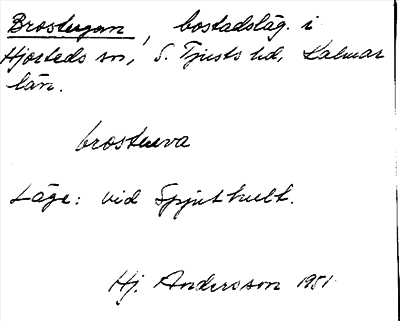 Brostugan, bostadsläg. i
Hjorteds sn, S. Tjusts hd, Kalmar
län.
brostuva
Läge: vid Spjuthult.
Hj. Andersson 1951.